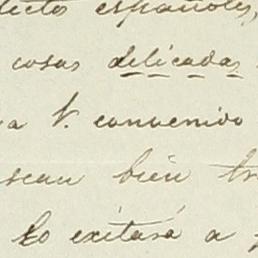 españoles,
cosas delicadas
a V. convenido
sean bien tr
lo exitará a